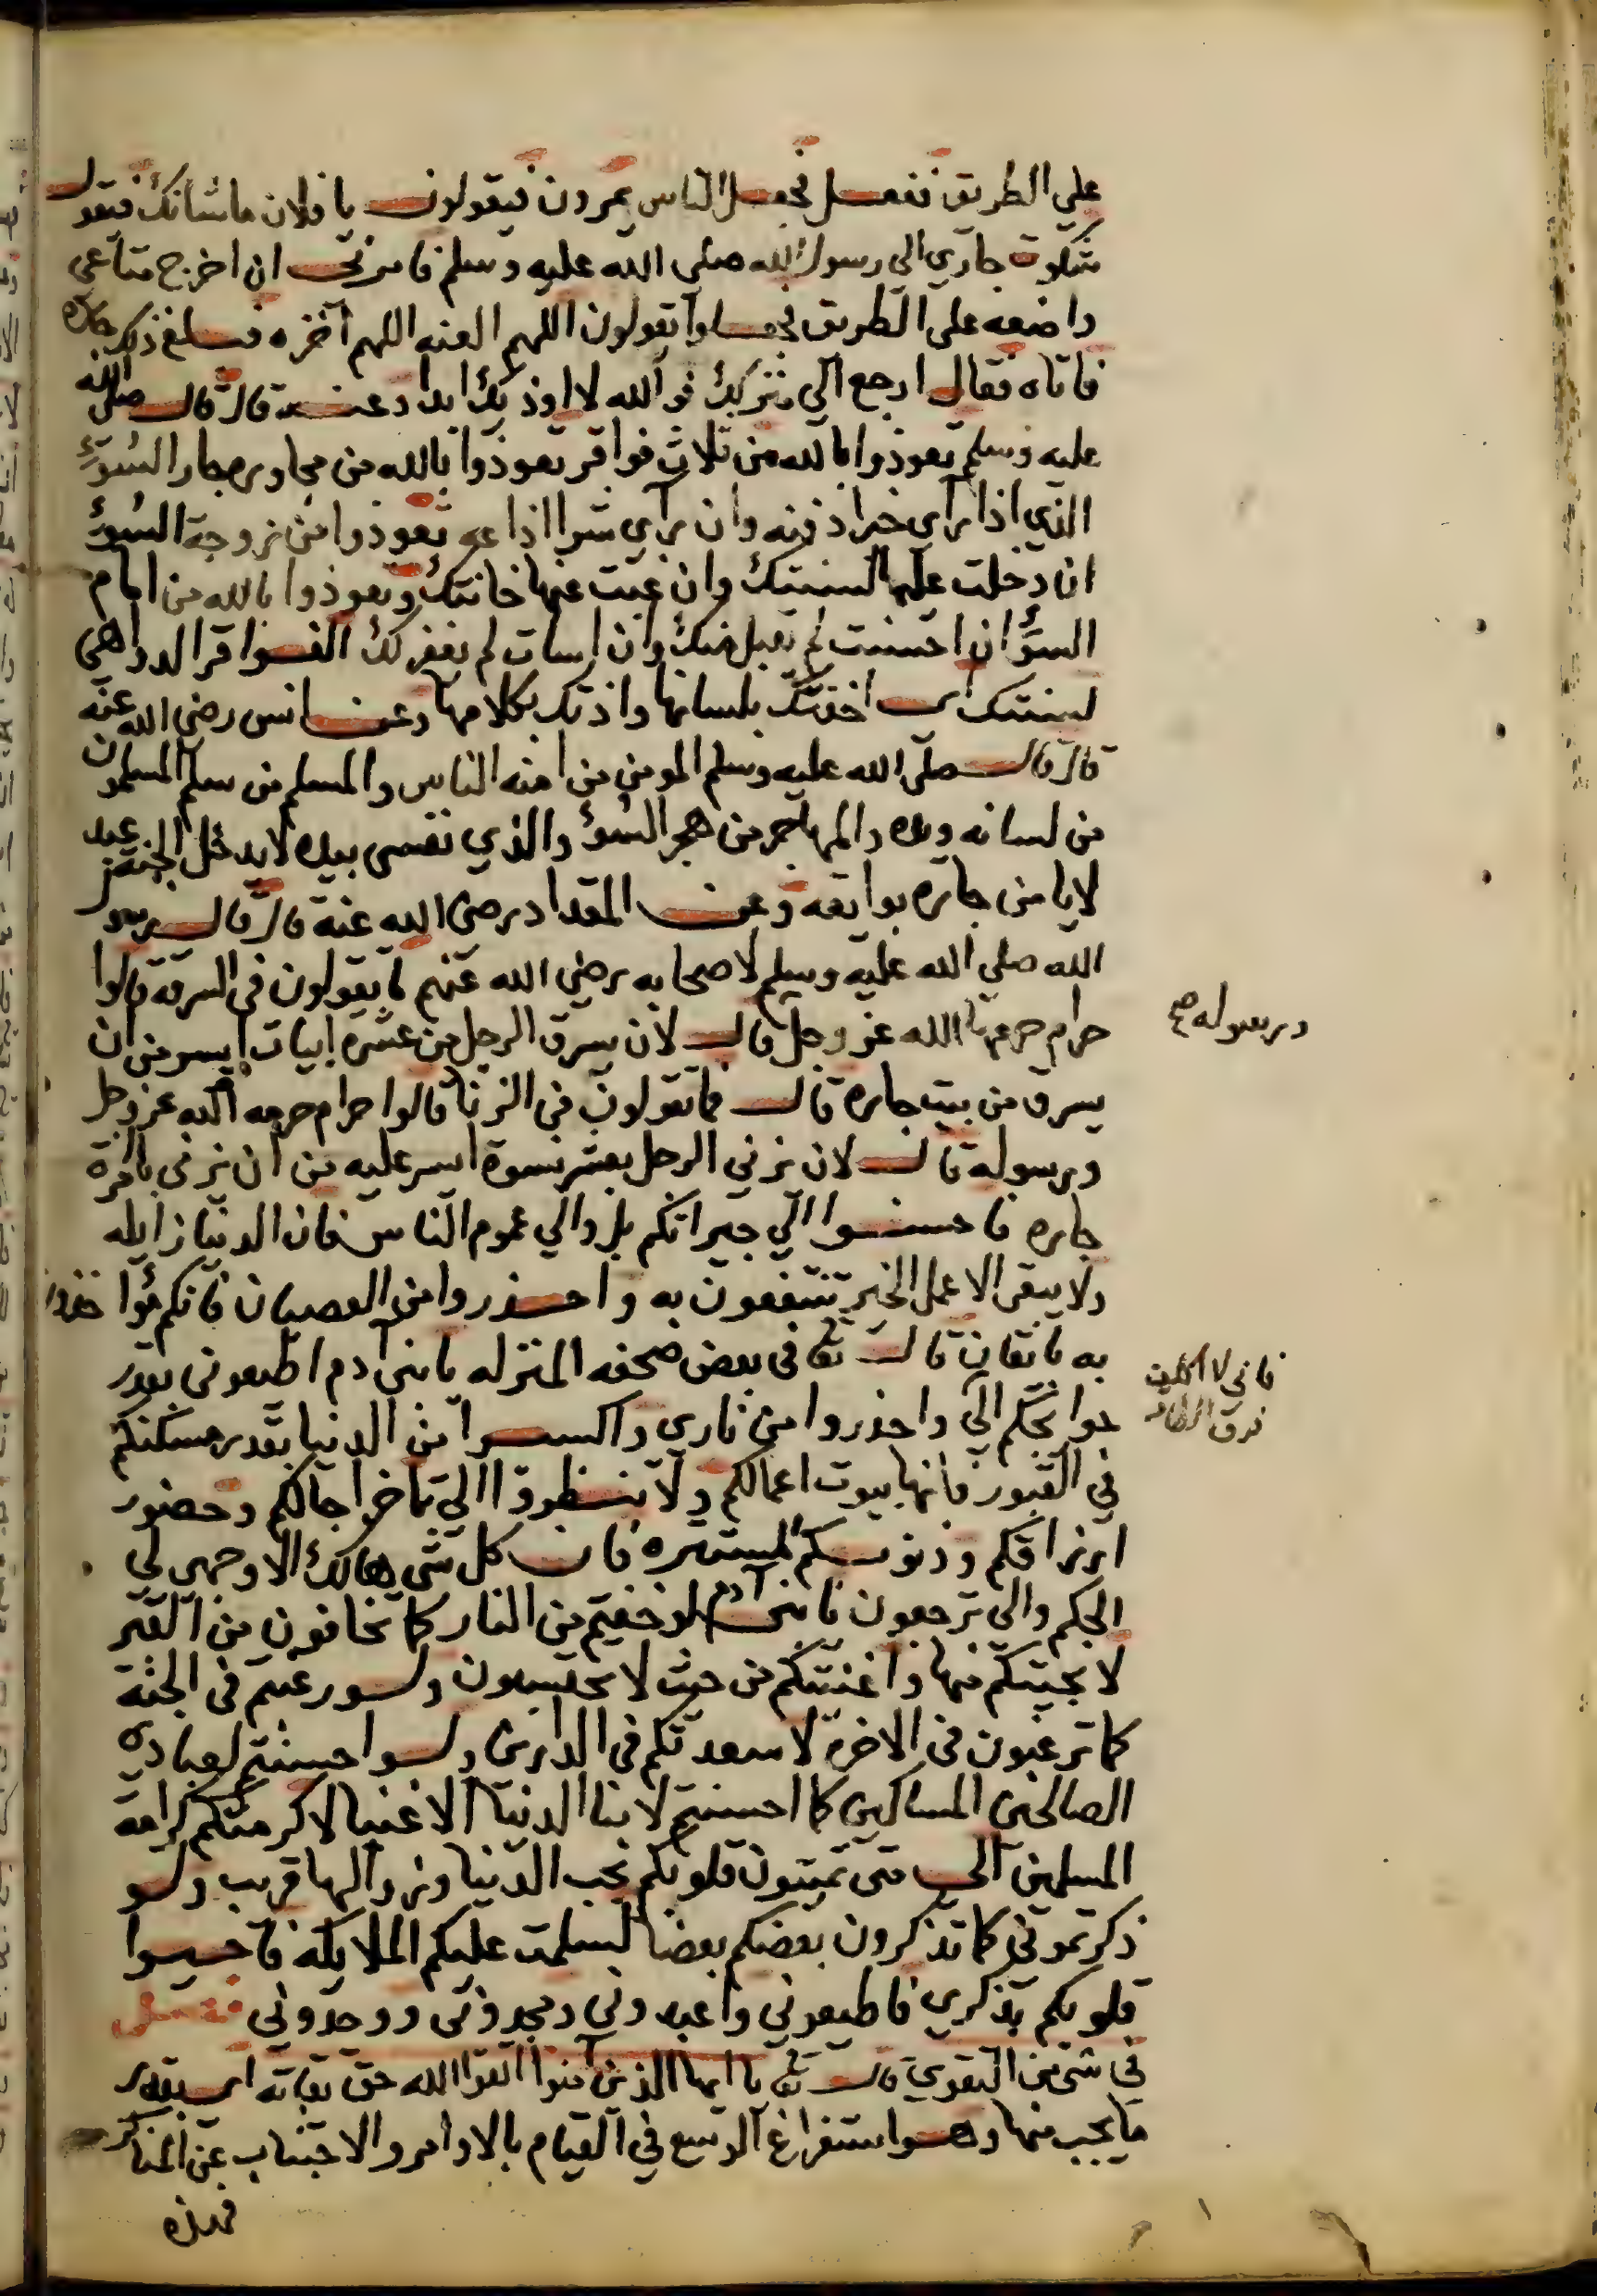 علي الطريق ففعل فجعل الناس يمرون فيقولون يا فلان ما شانك فيقول
شكوت جاري الى رسول الله صلي الله عليه وسلم فامرني ان اخرج متاعي
واضعه على الطريق فجعلوا يقولون اللهم العنه اللهم اخزه فبلغ ذلك جاره
فاتاه فقال ارجع الي منزلك فوالله لا اوذيك ابدا وعنه قال قال صلى الله
عليه وسلم تعوذوا بالله من ثلاث فواقر تعوذوا بالله من مجاورة جار السوء
الذي اذا راى خيرا دفنه وان راي شرا اذاعه تعوذوا من زوجة السوء
ان دخلت عليها لسنتك وان غبت عنها خانتك وتعوذوا بالله من امام
السوء ان احسنت لم يقبل منك وان اسات لم يغفر لك الفواقر الدواهي
لسنتك اي اخذتك بلسانها واذتك بكلامها وعن انس رضي الله عنه
قال قال صلى الله عليه وسلم المومن من امنه الناس والمسلم من سلم المسلمون
من لسانه ويده والمهاجر من هجر السوء والذي نفسي بيده لا يدخل الجنة عبد
لا يامن جاره بوايقه وعن المقداد رضى الله عنه قال قال رسول
الله صلي الله عليه وسلم لاصحابه رضي الله عنهم ما يقولون في السرقة قالوا
حرام حرمها الله عز وجل قال لان يسرق الرجل من عشرة ابيات ايسر من ان
يسرق من بيت جاره قال فما تقولون في الزنا قالوا حرام حرمه الله عز وجل
ورسوله قال لان يزني الرجل بعشر نسوة ايسر عليه من ان يزني بامرة
جاره فاحسنوا الي جيرانكم بل والي عموم الناس فان الدنيا زايله
ولا يبقى الا عمل الخير تنتفعون به واحذروا من العصيان فانكم
به باتقان قال تعالى في بعض صحفه المنزله يا بني ادم اطيعوني بقدر
حوايجكم الي واحذروا من ناري واكسبوا من الدنيا بقدر مسكنكم
في القبور فانها بيوت اعمالكم ولا تنظروا الي تاخر اجالكم وحضور
ارزاقكم وذنوبكم المستتره فان كل شي هالك الا وجهي لي
الحكم والي ترجعون يا بني ادم لو خفتم من النار كما تخافون من الفقر
لانجيتكم منها واغنيتكم من حيث لا تحتسبون ولو رغبتم في الجنة
كما ترغبون في الاخرة لاسعدتكم في الدارين ولو احسنتم لعبادي
الصالحين المساكين كما احسنتم لابنا الدنيا الاغنيا لاكرمتكم كرامة
المسلمين الي متى تميتون قلوبكم بحب الدنيا وزوالها قريب ولو
ذكرتموني كما تذكرون بعضكم بعضا لسلمت عليكم الملايكة فاحيوا
قلوبكم بذكري فاطيعوني واعبدوني ومجدوني ووحدوني فصل
في شي من التقوي قال تعالى يا ايها الذين آمنوا اتقوا الله حق تقاته اي بقدر
ما يجب منها وهو استفراغ الوسع في القيام بالاوامر والاجتناب عن المناكر
فهذه
ورسوله صح
فاني لا اكلف
فوق الطاقة